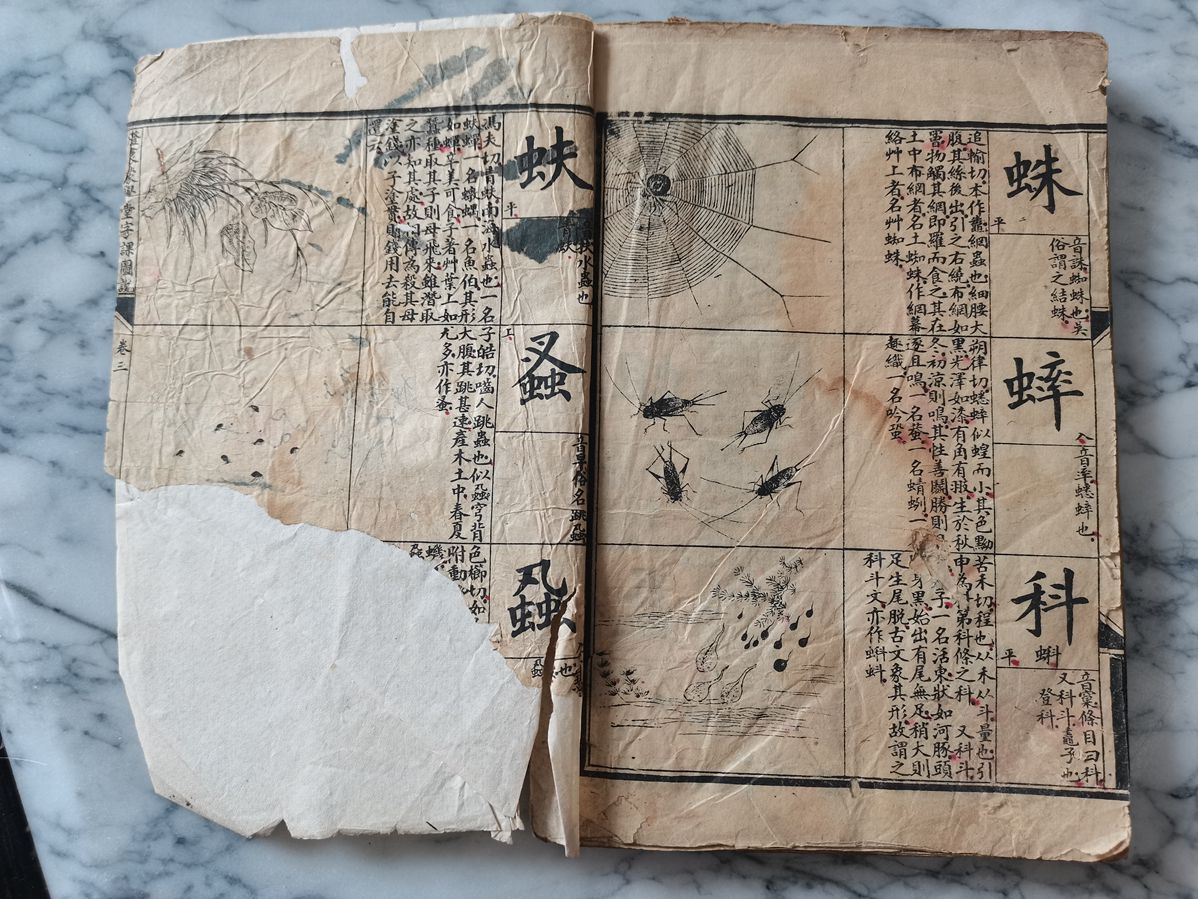 蛛
平
音誅蜘蛛也吳
俗謂之結蛛
追輸切本作鼄網蟲也細腰大
腹其絲後出引之右繞布網如
罾物觸其網即羅而食之其在
土中布網者名土蜘蛛作網幕
絡艸上者名艸蜘蛛
蟀
入
音率蟋蟀也
朔律切蟋蟀似蝗而小其色黝
黑光澤如漆有角有翅生於秋
冬初涼則鳴其性善鬭勝則
逐且鳴一名蛬一名蜻蛚一
趣織一名吟蛩
科
蝌
平
音窠條目曰科
又科斗鼃子也
登科
苦禾切程也从禾从斗量也引
申為科第科條之科 又科斗
子一名活東狀如河豚頭
身黑始出有尾無足稍大則
足生尾脫古文象其形故謂之
科斗文亦作蝌蚪
蚨
平
音扶水蟲也
馮夫切青蚨南海水蟲也一名
蚨蟬一名蟱蝸一名魚伯其形
如蟬辛美可食子著艸葉上如
蠶種取其子則母飛來雖潛取
之亦知其處故相傳為殺其母
塗錢以子塗貫則錢用去能自
還云
蚤
上
音早俗名跳蝨
子皓切嚙人跳蟲也似蝨穹背
大腹其跳甚速產木土中春夏
尤多亦作蚤
蝨
色櫛切如
附動
蟣
澄衷蒙學堂字課圖說
卷三